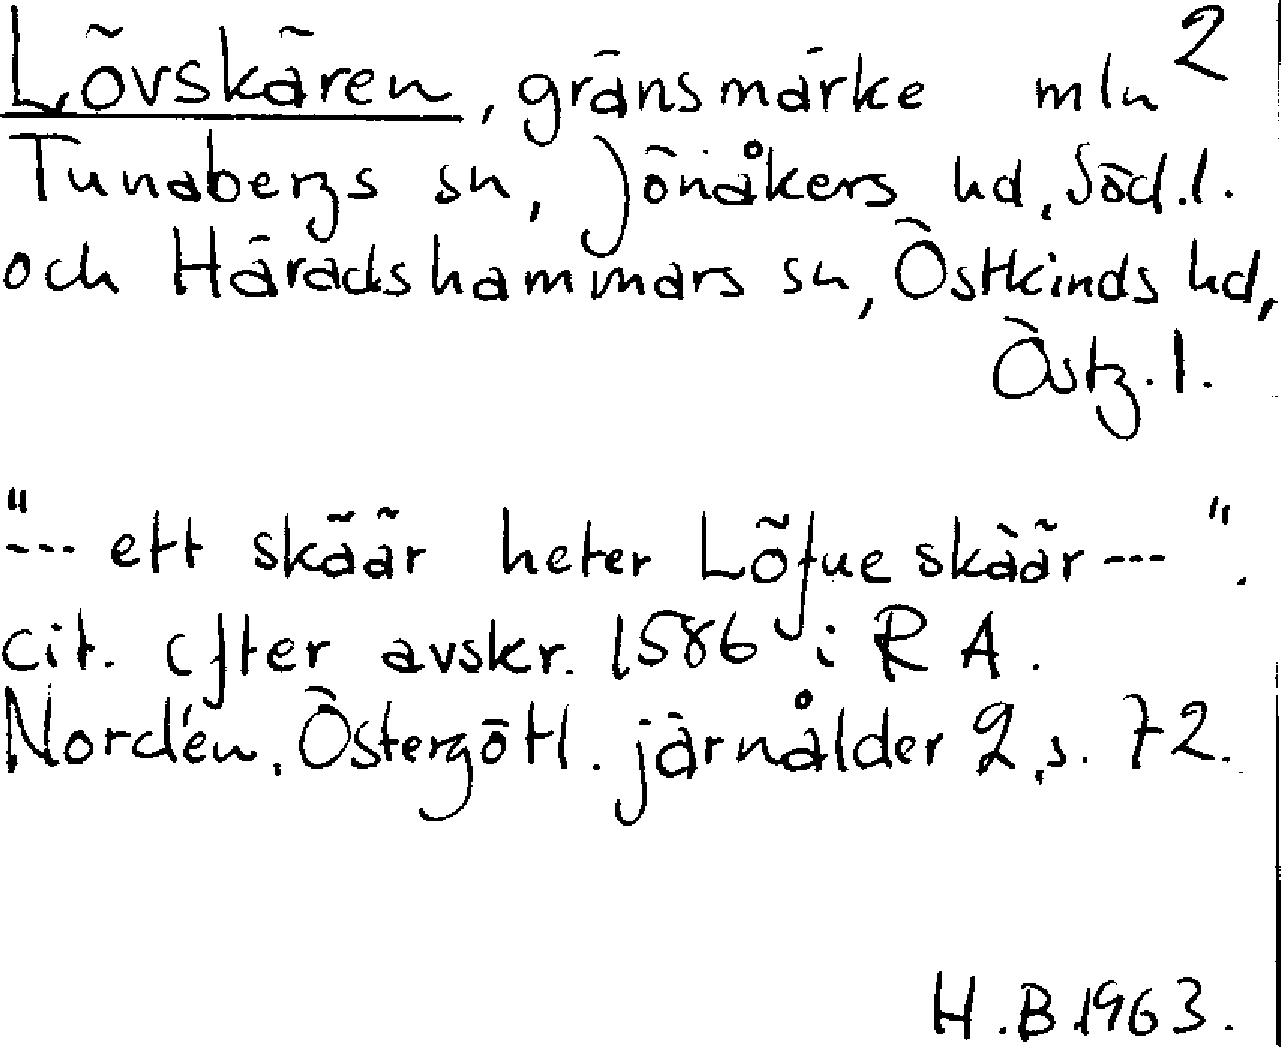 Lövskären, gränsmärke mln 2
Tunabergs sn, Jönåkers hd, Söd.l.
och Häradshammars sn, Östkinds hd,
Östg.l.
"--- ett skäär heter Löfue skäär ---".
cit. efter avskr. 1586 i RA.
Nordén, Östergötl. järnålder 2, s. 72.
H.B.1963.